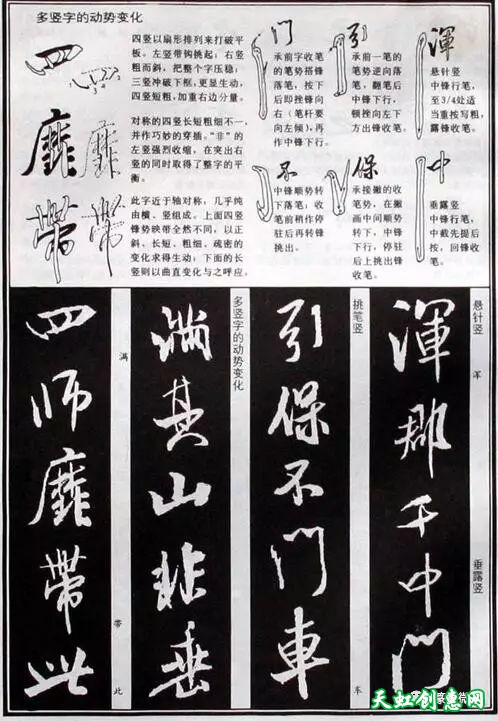 多竖字的动势变化
四竖以扇形排列来打破平
板。左竖带钩挑起；右竖
粗而斜，把整个字压稳；
三竖冲破下框，更显生动，
四竖短粗，加重右边分量。
对称的四竖长短粗细不一，
并作巧妙的穿插。“非”的
左竖强烈收缩，在突出右
竖的同时取得了整字的平
衡。
此字近于轴对称，几乎纯
由横、竖组成。上面四竖
锋势映带全然不同，以正
斜、长短、粗细、疏密的
变化求得生动；下面的长
竖则以曲直变化与之呼应。
四
靡
帶
门
承前一字收笔
的笔势搭锋
落笔，按下
后即挫锋向
右（笔杆要
向左倾），再
作中锋下行。
不
中锋顺势转
下落笔，收
笔前稍作停
驻后再转锋
挑出。
引
承前一笔的
笔势逆向落
笔，翻笔后
中锋下行，
顿挫向左下
方出锋收笔。
保
承接撇的收
笔势，在撇
画中间顺势
转下，中锋
下行，停驻
后上挑出锋
收笔。
渾
悬针竖
中锋行笔，
至3/4处适
当重按写粗，
露锋收笔。
中
垂露竖
中锋行笔，
中截先提后
按，回锋收
笔。
悬针竖
浑
垂露竖
渾
那
千
中
门
挑笔竖
车
引
保
不
门
車
多竖字的动势变化
满
其
山
非
垂
满
带
此
四
师
靡
帶
此
天虹创意网